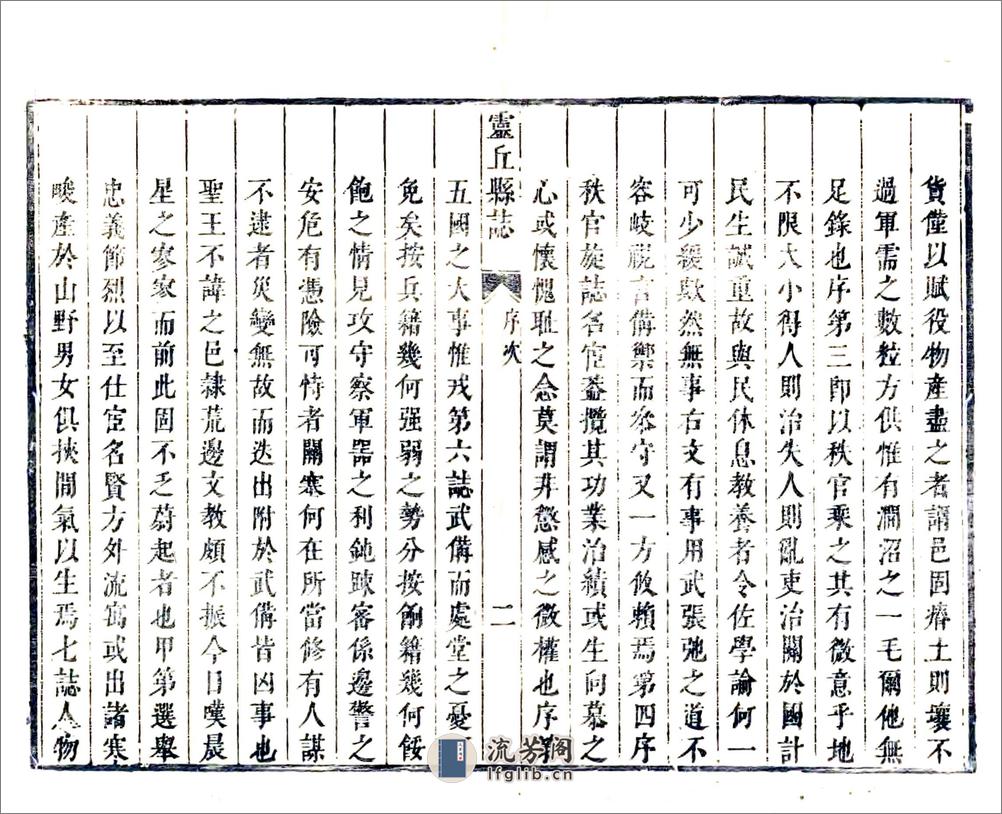 貨僅以賦役物產盡之者謂邑固瘠土則壤不
過軍需之數粒方供惟有澗沼之一毛爾他無
足錄也序第三即以秩官乘之其有微意乎地
不限大小得人則治失人則亂吏治關於國計
民生誠重故與民休息教養者令佐學諭何一
可少緩歟然無事右文有事用武張弛之道不
容岐視言備禦而叅守又一方攸賴焉第四序
秩官旋誌名宦葢攬其功業治績或生向慕之
心或懷愧耻之念莫謂非懲感之微權也序第
靈丘縣誌
序次
二
五國之大事惟戎第六誌武備而處堂之憂
免矣按兵籍幾何强弱之勢分按餉籍幾何餒
飽之情見攻守察軍器之利鈍踈審係邊警之
安危有憑險可恃者關寨何在所當修有人謀
不逮者災變無故而迭出附於武備皆凶事也
聖王不諱之邑隸荒邊文教頗不振今日嘆晨
星之寥寥而前此固不乏蔚起者也甲第選舉
忠義節烈以至仕宦名賢方外流寓或出諸寒
畯產於山野男女俱挾間氣以生焉七誌人物
流芳阁
lfglib.cn